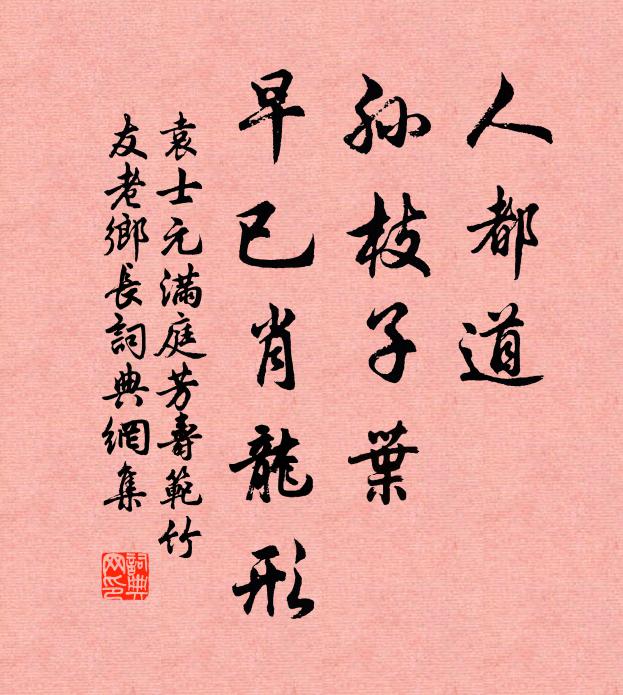 人都道
孙枝子葉
早已肖龍形
袁士元滿庭芳壽範竹
友老鄉長詞典網集
詞典
网印